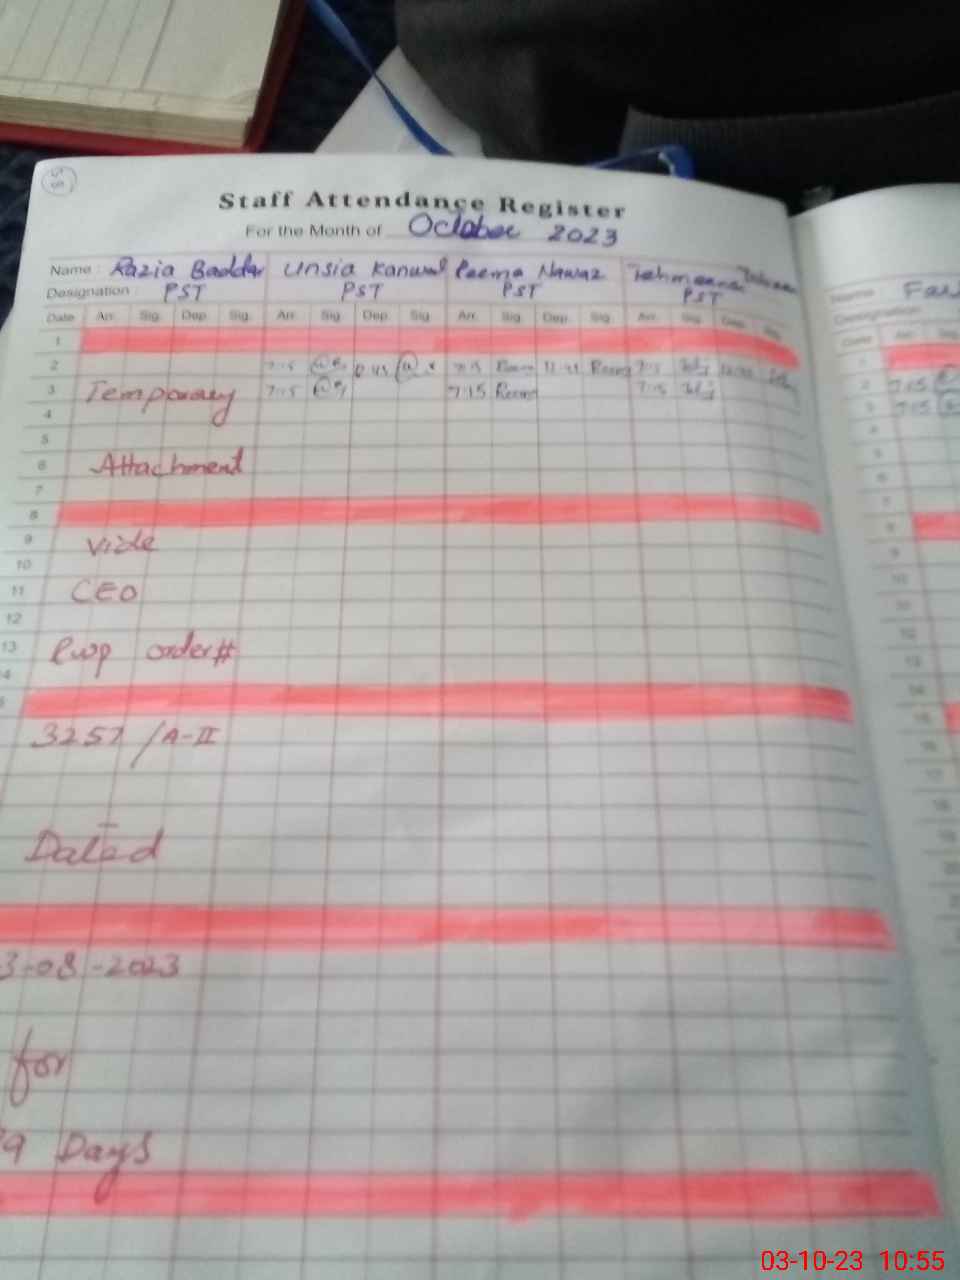 Staff Attendance Register
For the Month of October 2023
Name : Razia Baddar Unsia Kanwal Reema Nawaz Tehmeena
Designation : PST PST PST PST
Date Arr. Sig. Dep. Sig. Arr. Sig. Dep. Sig. Arr. Sig. Dep. Sig. Arr. Sig. Dep. Sig.
1
2 7:15 7:15 7:15
3 Temporary 7:15 7:15 7:15
4
5
6 Attachment
7
8
9 vide
10
11 CEO
12
13 Rwp order#
3257 /A-II
Dated
3-08-2023
for
9 Days
Name :
Designation
Date Arr.
1
2 7:15
3 7:15
4
5
6
7
8
9
10
11
12
13
14
15
16
17
18
19
03-10-23 10:55